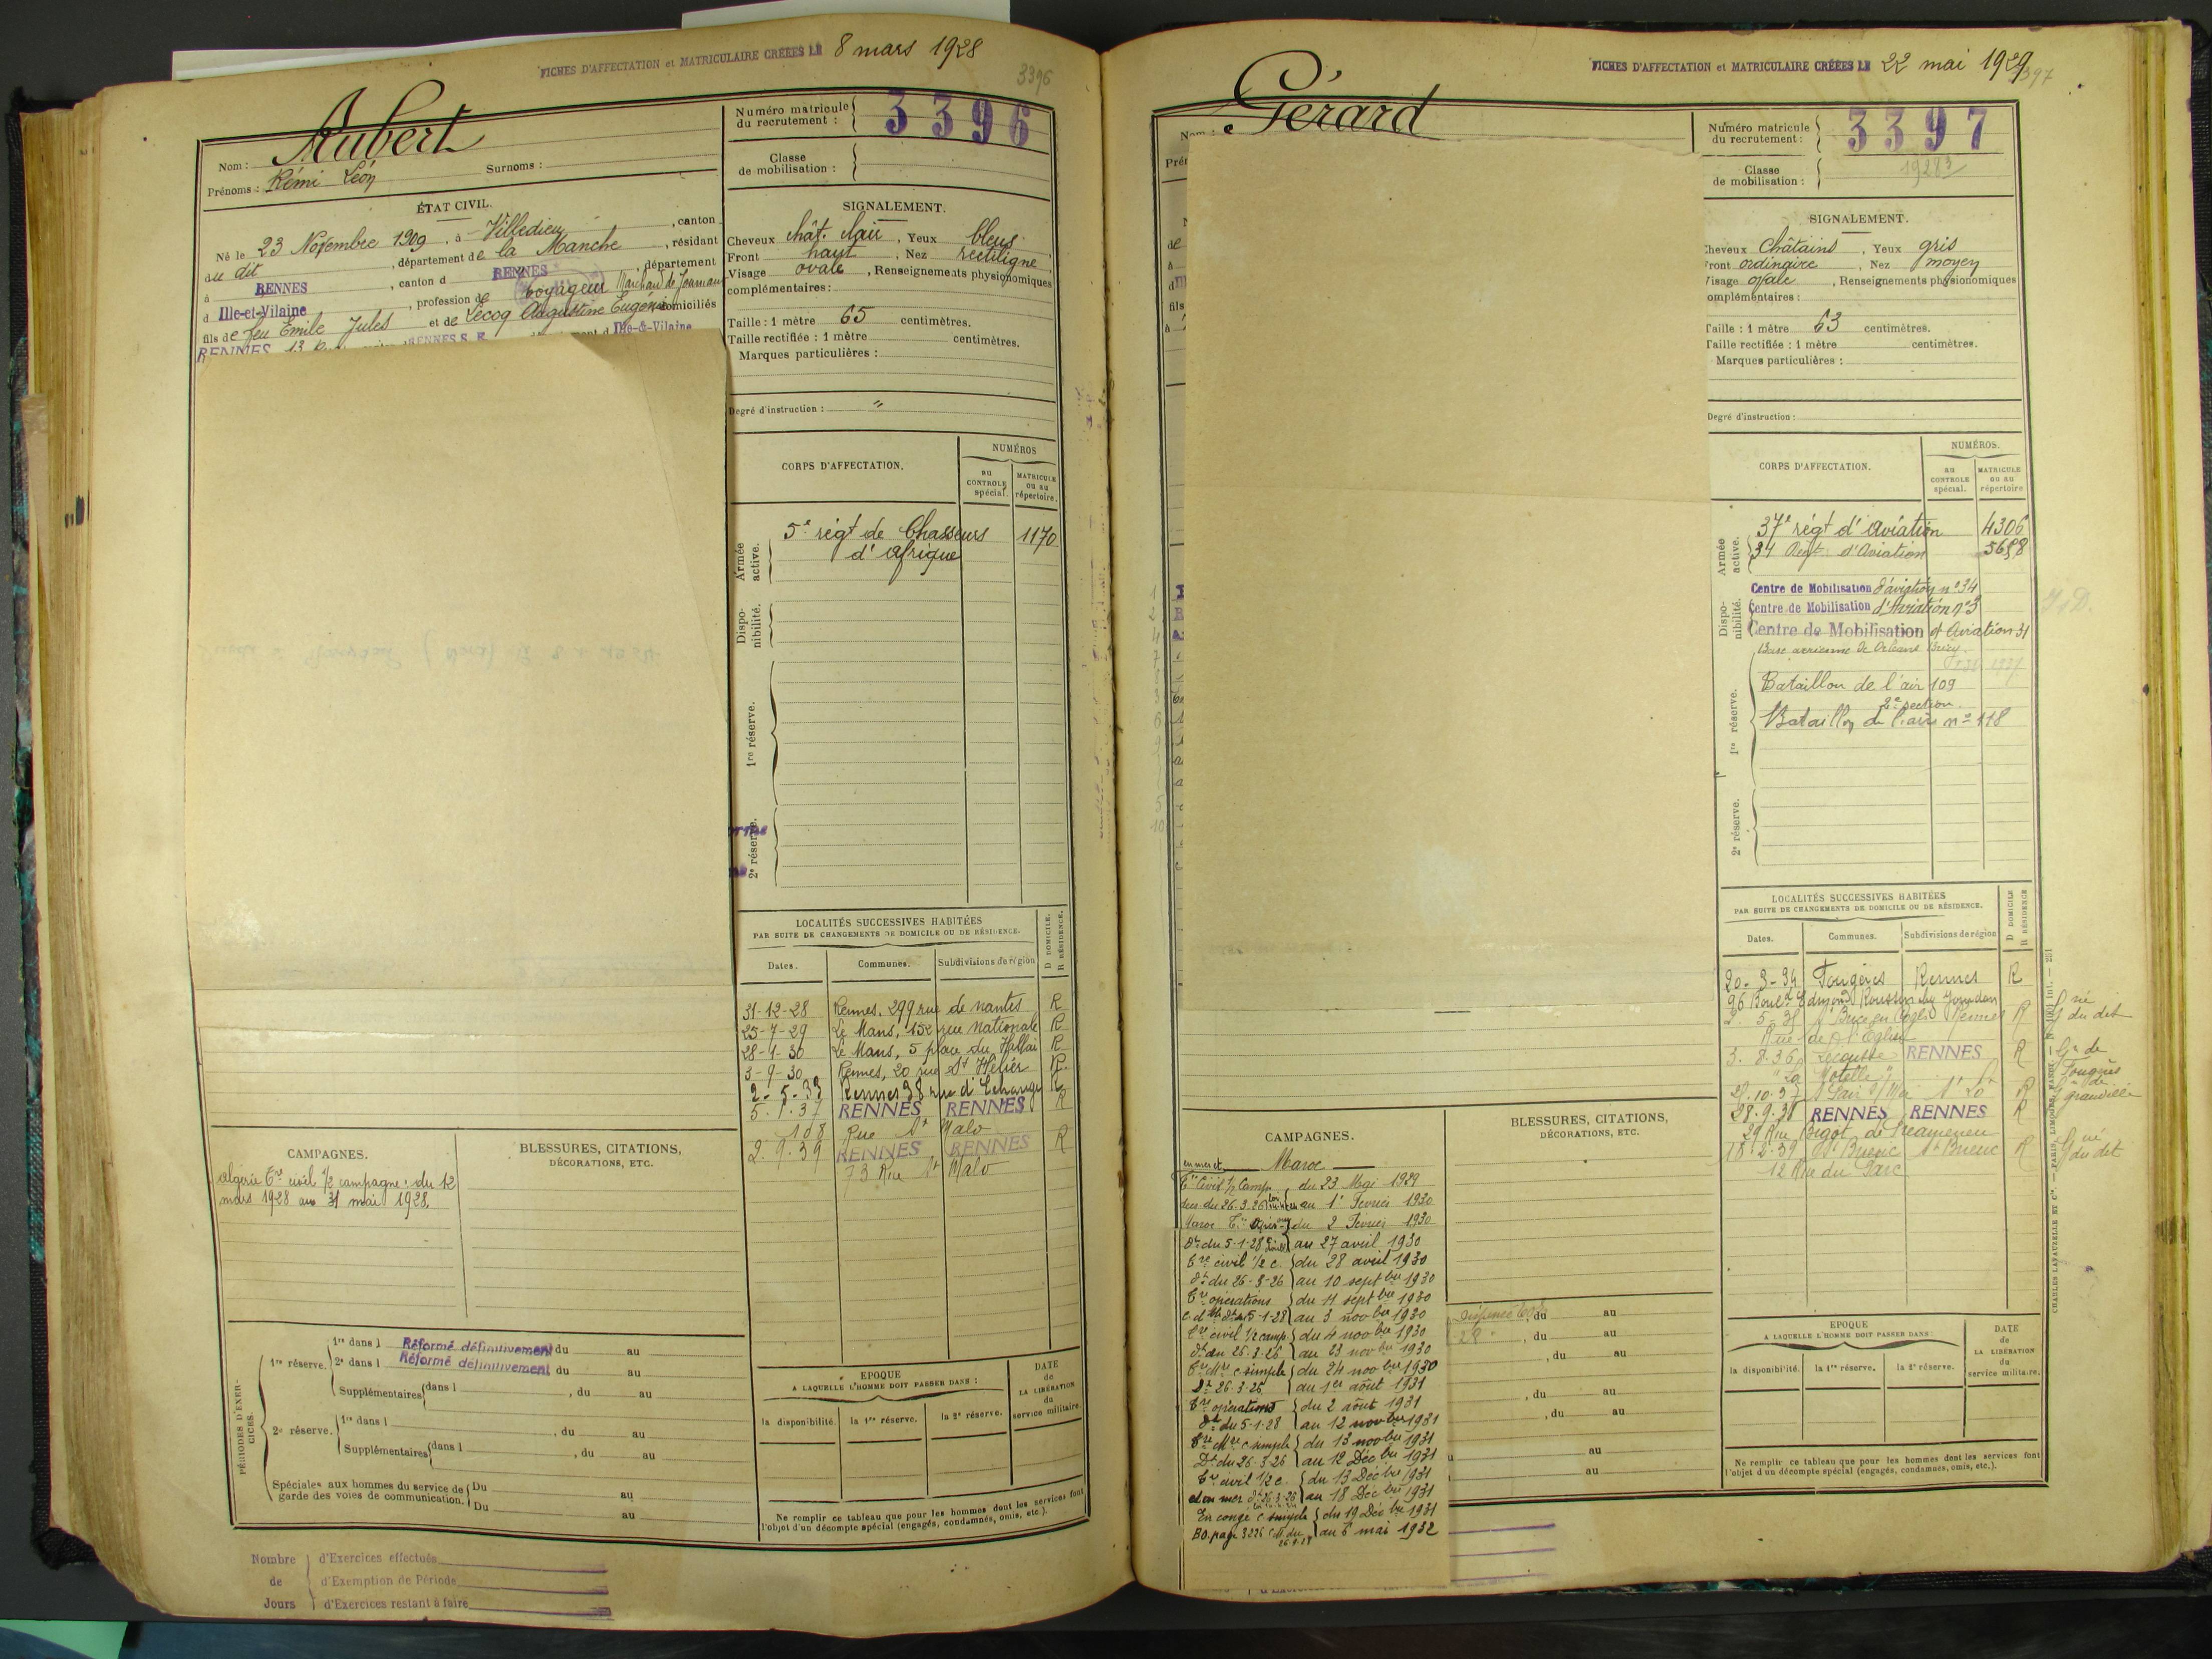 FICHES D'AFFECTATION et MATRICULAIRE CRÉÉES LE 8 mars 1928
3396
Nom : Aubert
Prénoms : Rémi Léon Surnoms :
Numéro matricule du recrutement : 3396
Classe de mobilisation :
ÉTAT CIVIL.
Né le 23 Novembre 1909, à Villedieu, canton
du dit, département de la Manche, résidant
à RENNES, canton d RENNES, département
d Ille-et-Vilaine, profession de voyageur Marchand de Journaux
fils de feu Emile Jules et de Lecoq Augustine Eugénie domiciliés
RENNES 13 RENNES S. E. Ille-&-Vilaine
SIGNALEMENT.
Cheveux chât. clair, Yeux bleus
Front haut, Nez rectiligne
Visage ovale, Renseignements physionomiques
complémentaires :
Taille : 1 mètre 65 centimètres.
Taille rectifiée : 1 mètre centimètres.
Marques particulières :
Degré d'instruction : "
CORPS D'AFFECTATION.
NUMÉROS
au CONTROLE spécial.
MATRICULE ou au répertoire.
Armée active.
5e régt de Chasseurs 1170
d'afrique
Disponibilité.
1re réserve.
2e réserve.
LOCALITÉS SUCCESSIVES HABITÉES
PAR SUITE DE CHANGEMENTS DE DOMICILE OU DE RÉSIDENCE.
Dates. Communes. Subdivisions de région D DOMICILE. R RÉSIDENCE.
31-12-28 Rennes, 299 rue de nantes R
25-7-29 Le Mans, 152 rue nationale R
28-1-30 Le Mans, 5 place du Hallai R
3-9-30 Rennes, 20 rue St Hélier R
2-5-33 Rennes 38 rue d'Echange R
5.1.37 RENNES RENNES R
108 Rue St Malo
2.9.39 RENNES RENNES R
73 Rue St Malo
CAMPAGNES.
algérie Tre civil 1/2 campagne : du 12
mars 1928 au 31 mai 1928.
BLESSURES, CITATIONS,
DÉCORATIONS, ETC.
PÉRIODES D'EXERCICES.
1re réserve. 1re dans l Réformé définitivement du au
2e dans l Réformé définitivement du au
Supplémentaires dans l , du au
2e réserve. 1re dans l , du au
Supplémentaires dans l , du au
Spéciales aux hommes du service de garde des voies de communication. Du au
Du au
EPOQUE
A LAQUELLE L'HOMME DOIT PASSER DANS :
la disponibilité. la 1re réserve. la 2e réserve.
DATE de LA LIBÉRATION du service militaire.
Ne remplir ce tableau que pour les hommes dont les services font
l'objet d'un décompte spécial (engagés, condamnés, omis, etc.).
Nombre de Jours
d'Exercices effectués
d'Exemption de Période
d'Exercices restant à faire
FICHES D'AFFECTATION et MATRICULAIRE CRÉÉES LE 22 mai 1929
3397
Nom : Gérard
Numéro matricule du recrutement : 3397
Classe de mobilisation :
SIGNALEMENT.
Cheveux Châtains, Yeux gris
Front ordinaire, Nez moyen
Visage ovale, Renseignements physionomiques
complémentaires :
Taille : 1 mètre 63 centimètres.
Taille rectifiée : 1 mètre centimètres.
Marques particulières :
Degré d'instruction :
CORPS D'AFFECTATION.
NUMÉROS.
au CONTROLE spécial.
MATRICULE ou au répertoire
Armée active.
37e régt d'aviation 4306
34 Régt d'Aviation
Disponibilité.
Centre de Mobilisation d'aviation n° 34
Centre de Mobilisation d'Aviation n° 3
Centre de Mobilisation d'Aviation 31
Base aérienne de Orléans Bricy
1re réserve.
Bataillon de l'air 109
2e section
Bataillon de l'air n° 118
2e réserve.
LOCALITÉS SUCCESSIVES HABITÉES
PAR SUITE DE CHANGEMENTS DE DOMICILE OU DE RÉSIDENCE.
Dates. Communes. Subdivisions de région D DOMICILE R RÉSIDENCE
20-3-34 Fougères Rennes R
96 Bould Edmond Roussin
Rennes R
Rue de l'Eglise
3.8.36 Lecousse RENNES R
La Motelle
St Lô R
28.9.38 RENNES RENNES R
29 Rue Bigot de Préameneu
St Brieuc St Brieuc R
12 Rue du Parc
Gie de Fougères
Gie de granville
du dit
CAMPAGNES.
en mer et Maroc
Tre Civil 1/2 Camp. du 23 Mai 1929
au 1er Février 1930
du 2 Février 1930
au 27 avril 1930
Tre civil 1/2 c. du 28 avril 1930
dt du 26-3-26 au 10 septbre 1930
Tre opérations du 11 septbre 1930
au 3 novbre 1930
Tre civil 1/2 camp du 4 novbre 1930
dt du 26.3.26 au 23 novbre 1930
Tre Mre c simple du 24 novbre 1930
Dt 26.3.26 au 1er août 1931
Tre opérations du 2 août 1931
dt du 5-1-28 au 12 novbre 1931
Tre Mre c simple du 13 novbre 1931
Dt du 26.3.26 au 12 Décbre 1931
Tre civil 1/2 c. du 13 Décbre 1931
et en mer au 18 Décbre 1931
En congé c simple du 19 Décbre 1931
BO. page 3226 au 6 mai 1932
BLESSURES, CITATIONS,
DÉCORATIONS, ETC.
, du au
, du au
, du au
, du au
, du au
au
au
EPOQUE
A LAQUELLE L'HOMME DOIT PASSER DANS :
la disponibilité. la 1re réserve. la 2e réserve.
DATE de LA LIBÉRATION du service militaire.
Ne remplir ce tableau que pour les hommes dont les services font
l'objet d'un décompte spécial (engagés, condamnés, omis, etc.).
CHARLES LAVAUZELLE ET Cie. — PARIS, LIMOGES, NANCY.